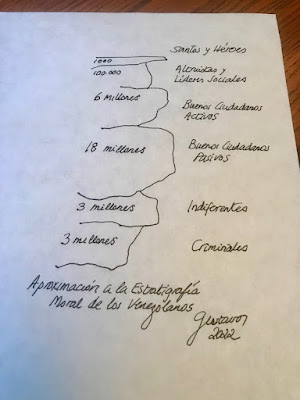 1000 Santos y Héroes
100.000 Altruistas y
Líderes Sociales
6 millones Buenos Ciudadanos
Activos
18 millones Buenos Ciudadanos
Pasivos
3 millones Indiferentes
3 millones Criminales
Aproximación a la Estratigrafía
Moral de los Venezolanos
Gustavo
2022